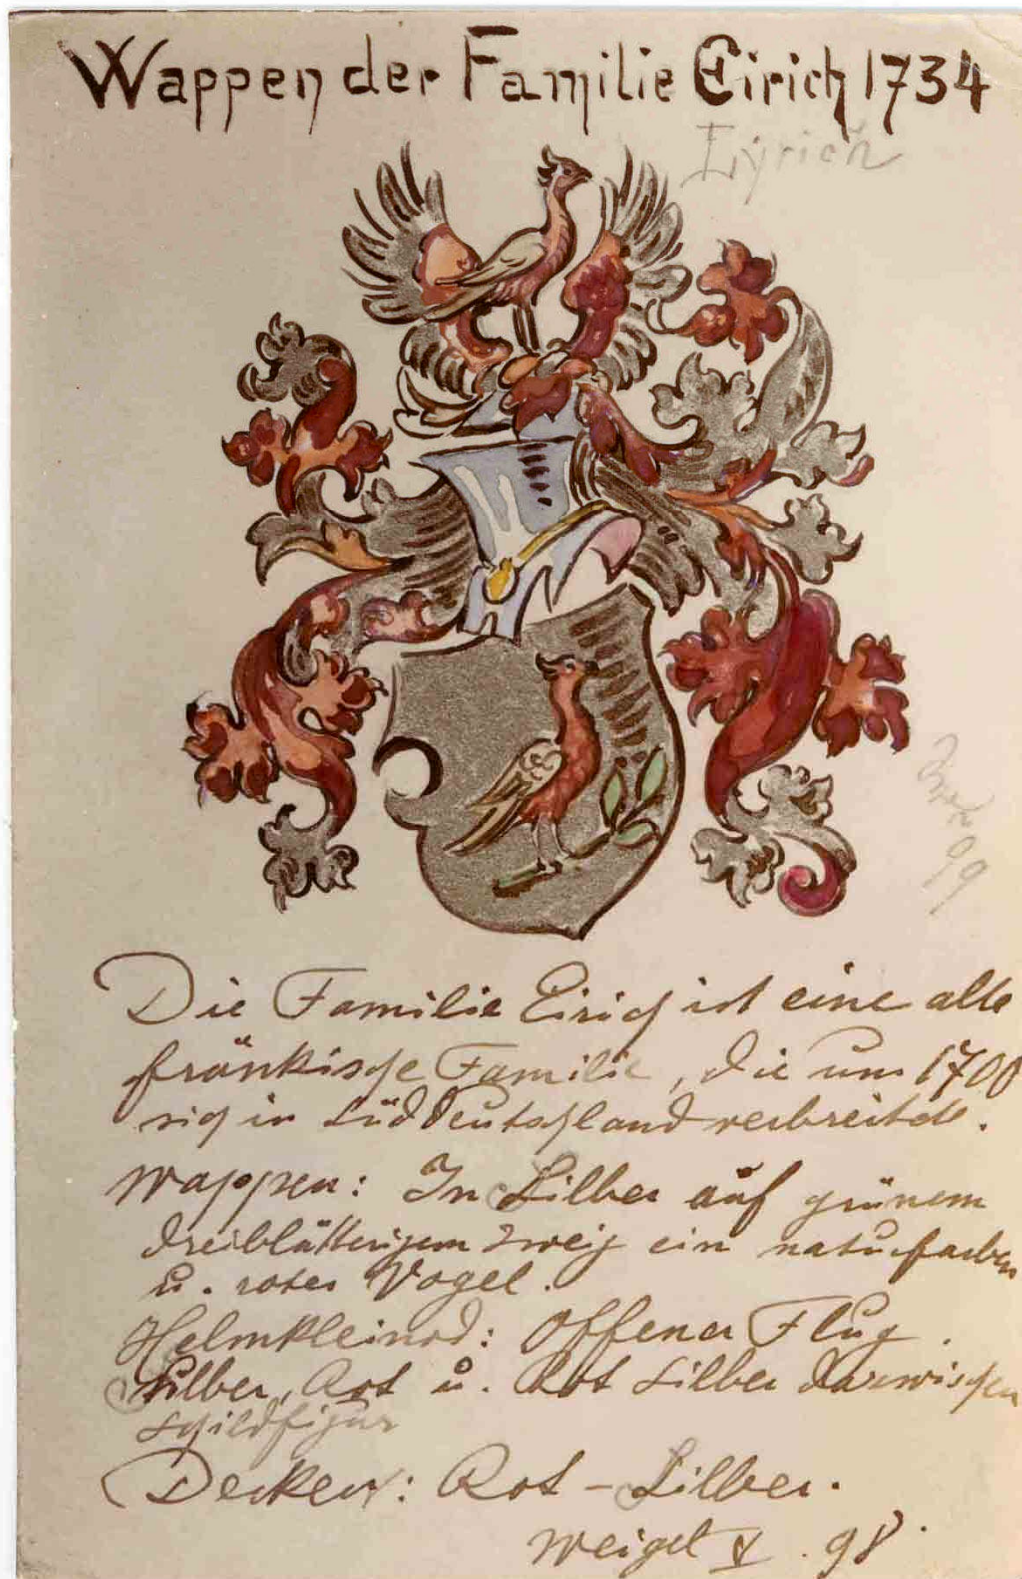 Wappen der Familie Eirich 1734
Eyrich
Die Familie Eirich ist eine alte
fränkische Familie, die um 1700
sich in Süddeutschland verbreitete.
Wappen: In Silber auf grünem
dreiblätterigem Zweig ein naturfarben
u. roter Vogel.
Helmkleinod: Offener Flug.
Silber, Rot u. Rot Silber dazwischen
Schildfigur
Decken: Rot – Silber.
Weigel V. 98.
99